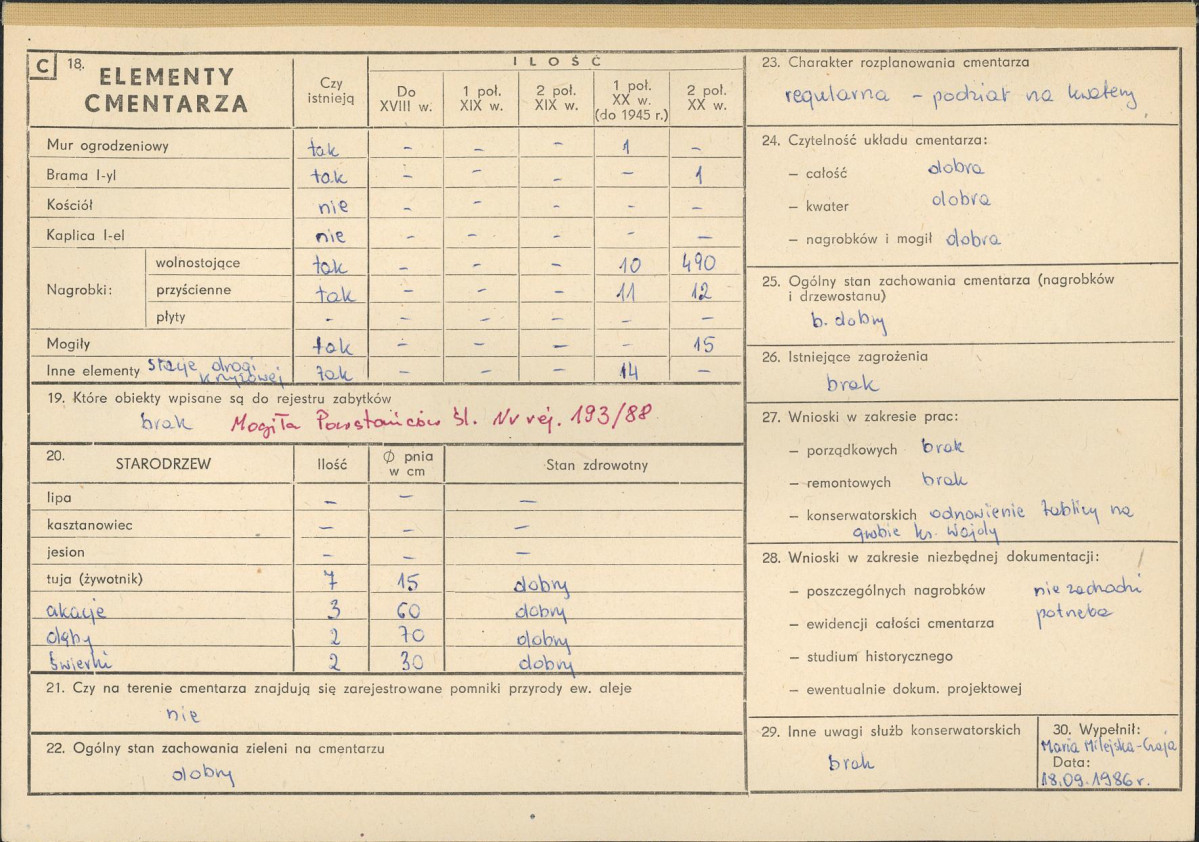 C 18. ELEMENTY CMENTARZA
Czy istnieją
ILOŚĆ
Do XVIII w.
1 poł. XIX w.
2 poł. XIX w.
1 poł. XX w. (do 1945 r.)
2 poł. XX w.
Mur ogrodzeniowy tak – – – 1 –
Brama I-yl tak – – – – 1
Kościół nie – – – – –
Kaplica I-el nie – – – – –
Nagrobki:
wolnostojące tak – – – 10 490
przyścienne tak – – – 11 12
płyty – – – – – –
Mogiły tak – – – – 15
Inne elementy stacje drogi krzyżowej tak – – – 14 –
19. Które obiekty wpisane są do rejestru zabytków
brak Mogiła Powstańców Śl. Nr rej. 193/88
20. STARODRZEW
Ilość
Ø pnia w cm
Stan zdrowotny
lipa – – –
kasztanowiec – – –
jesion – – –
tuja (żywotnik) 7 15 dobry
akacje 3 60 dobry
dęby 2 70 dobry
świerki 2 30 dobry
21. Czy na terenie cmentarza znajdują się zarejestrowane pomniki przyrody ew. aleje
nie
22. Ogólny stan zachowania zieleni na cmentarzu
dobry
23. Charakter rozplanowania cmentarza
regularna – podział na kwatery
24. Czytelność układu cmentarza:
– całość dobra
– kwater dobra
– nagrobków i mogił dobra
25. Ogólny stan zachowania cmentarza (nagrobków
i drzewostanu)
b. dobry
26. Istniejące zagrożenia
brak
27. Wnioski w zakresie prac:
– porządkowych brak
– remontowych brak
– konserwatorskich odnowienie tablicy na
grobie ks. Wajdy
28. Wnioski w zakresie niezbędnej dokumentacji:
– poszczególnych nagrobków nie zachodzi
potrzeba
– ewidencji całości cmentarza
– studium historycznego
– ewentualnie dokum. projektowej
29. Inne uwagi służb konserwatorskich
brak
30. Wypełnił:
Maria Milejska-
Data:
18.09.1986 r.